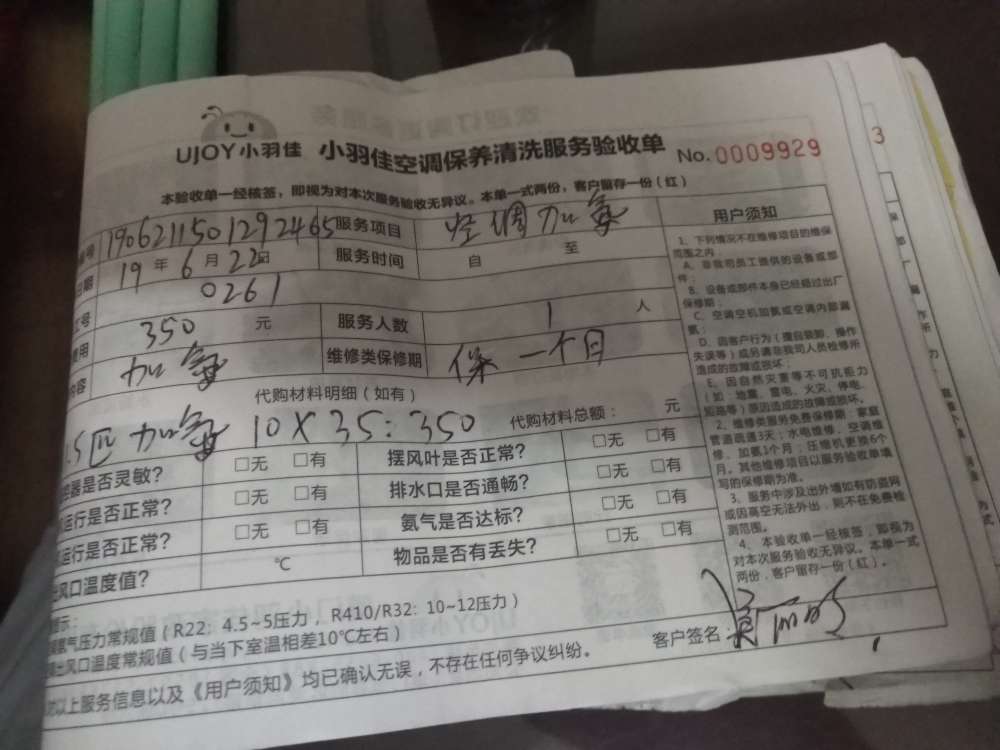 UJOY小羽佳 小羽佳空调保养清洗服务验收单 No.0009929
3
本验收单一经核签，即视为对本次服务验收无异议。本单一式两份，客户留存一份（红）
号 190621150129 2465 服务项目 空调加氟
日期 19年6月22日 服务时间 自 至
号 0261
费用 350元 服务人数 1人
内容 加氟 维修类保修期 保一个月
代购材料明细（如有）
.5匹 加氟 10X35:350 代购材料总额： 元
器是否灵敏？ □无 □有 摆风叶是否正常？ □无 □有
运行是否正常？ □无 □有 排水口是否通畅？ □无 □有
运行是否正常？ □无 □有 氨气是否达标？ □无 □有
出风口温度值？ ℃ 物品是否有丢失？ □无 □有
示：
氨气压力常规值（R22：4.5~5压力，R410/R32：10~12压力）
出风口温度常规值（与当下室温相差10℃左右）
客户签名：
对以上服务信息以及《用户须知》均已确认无误，不存在任何争议纠纷。
用户须知
1、下列情况不在维修项目的维保
范围之内：
A、非我司员工提供的设备或部
件；
B、设备或部件本身已经超过出厂
保修期；
C、空调空机加氮或空调内部漏
氮；
D、因客户行为（擅自装卸、操作
失误等）或另请非我司人员检修所
造成的故障或损坏；
E、因自然灾害等不可抗拒力
（如：地震、雷电、火灾、停电、
短路等）原因造成的故障或损坏。
2、维修类服务免费保修期：家庭
管道疏通3天；水电维修、空调维
修、加氨1个月；压缩机更换6个
月。其他维修项目以服务验收单填
写的保修期为准。
3、服务中涉及出外墙如有防盗网
或因高空无法外出，则不在免费检
测范围。
4、本验收单一经核签，即视为
对本次服务验收无异议。本单一式
两份，客户留存一份（红）。